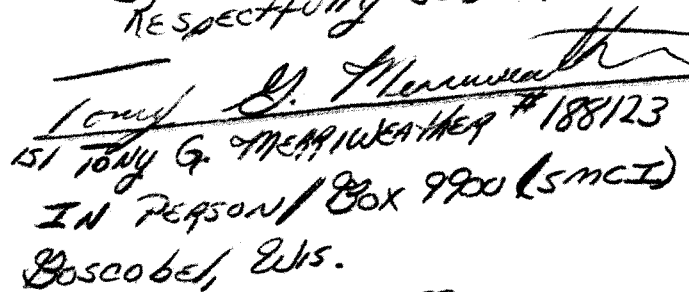 Respectfully
Tony G. Merriweather
/s/ TONY G. MERRIWEATHER #188123
IN PERSON/ BOX 9900 (SMCI)
Boscobel, Wis.